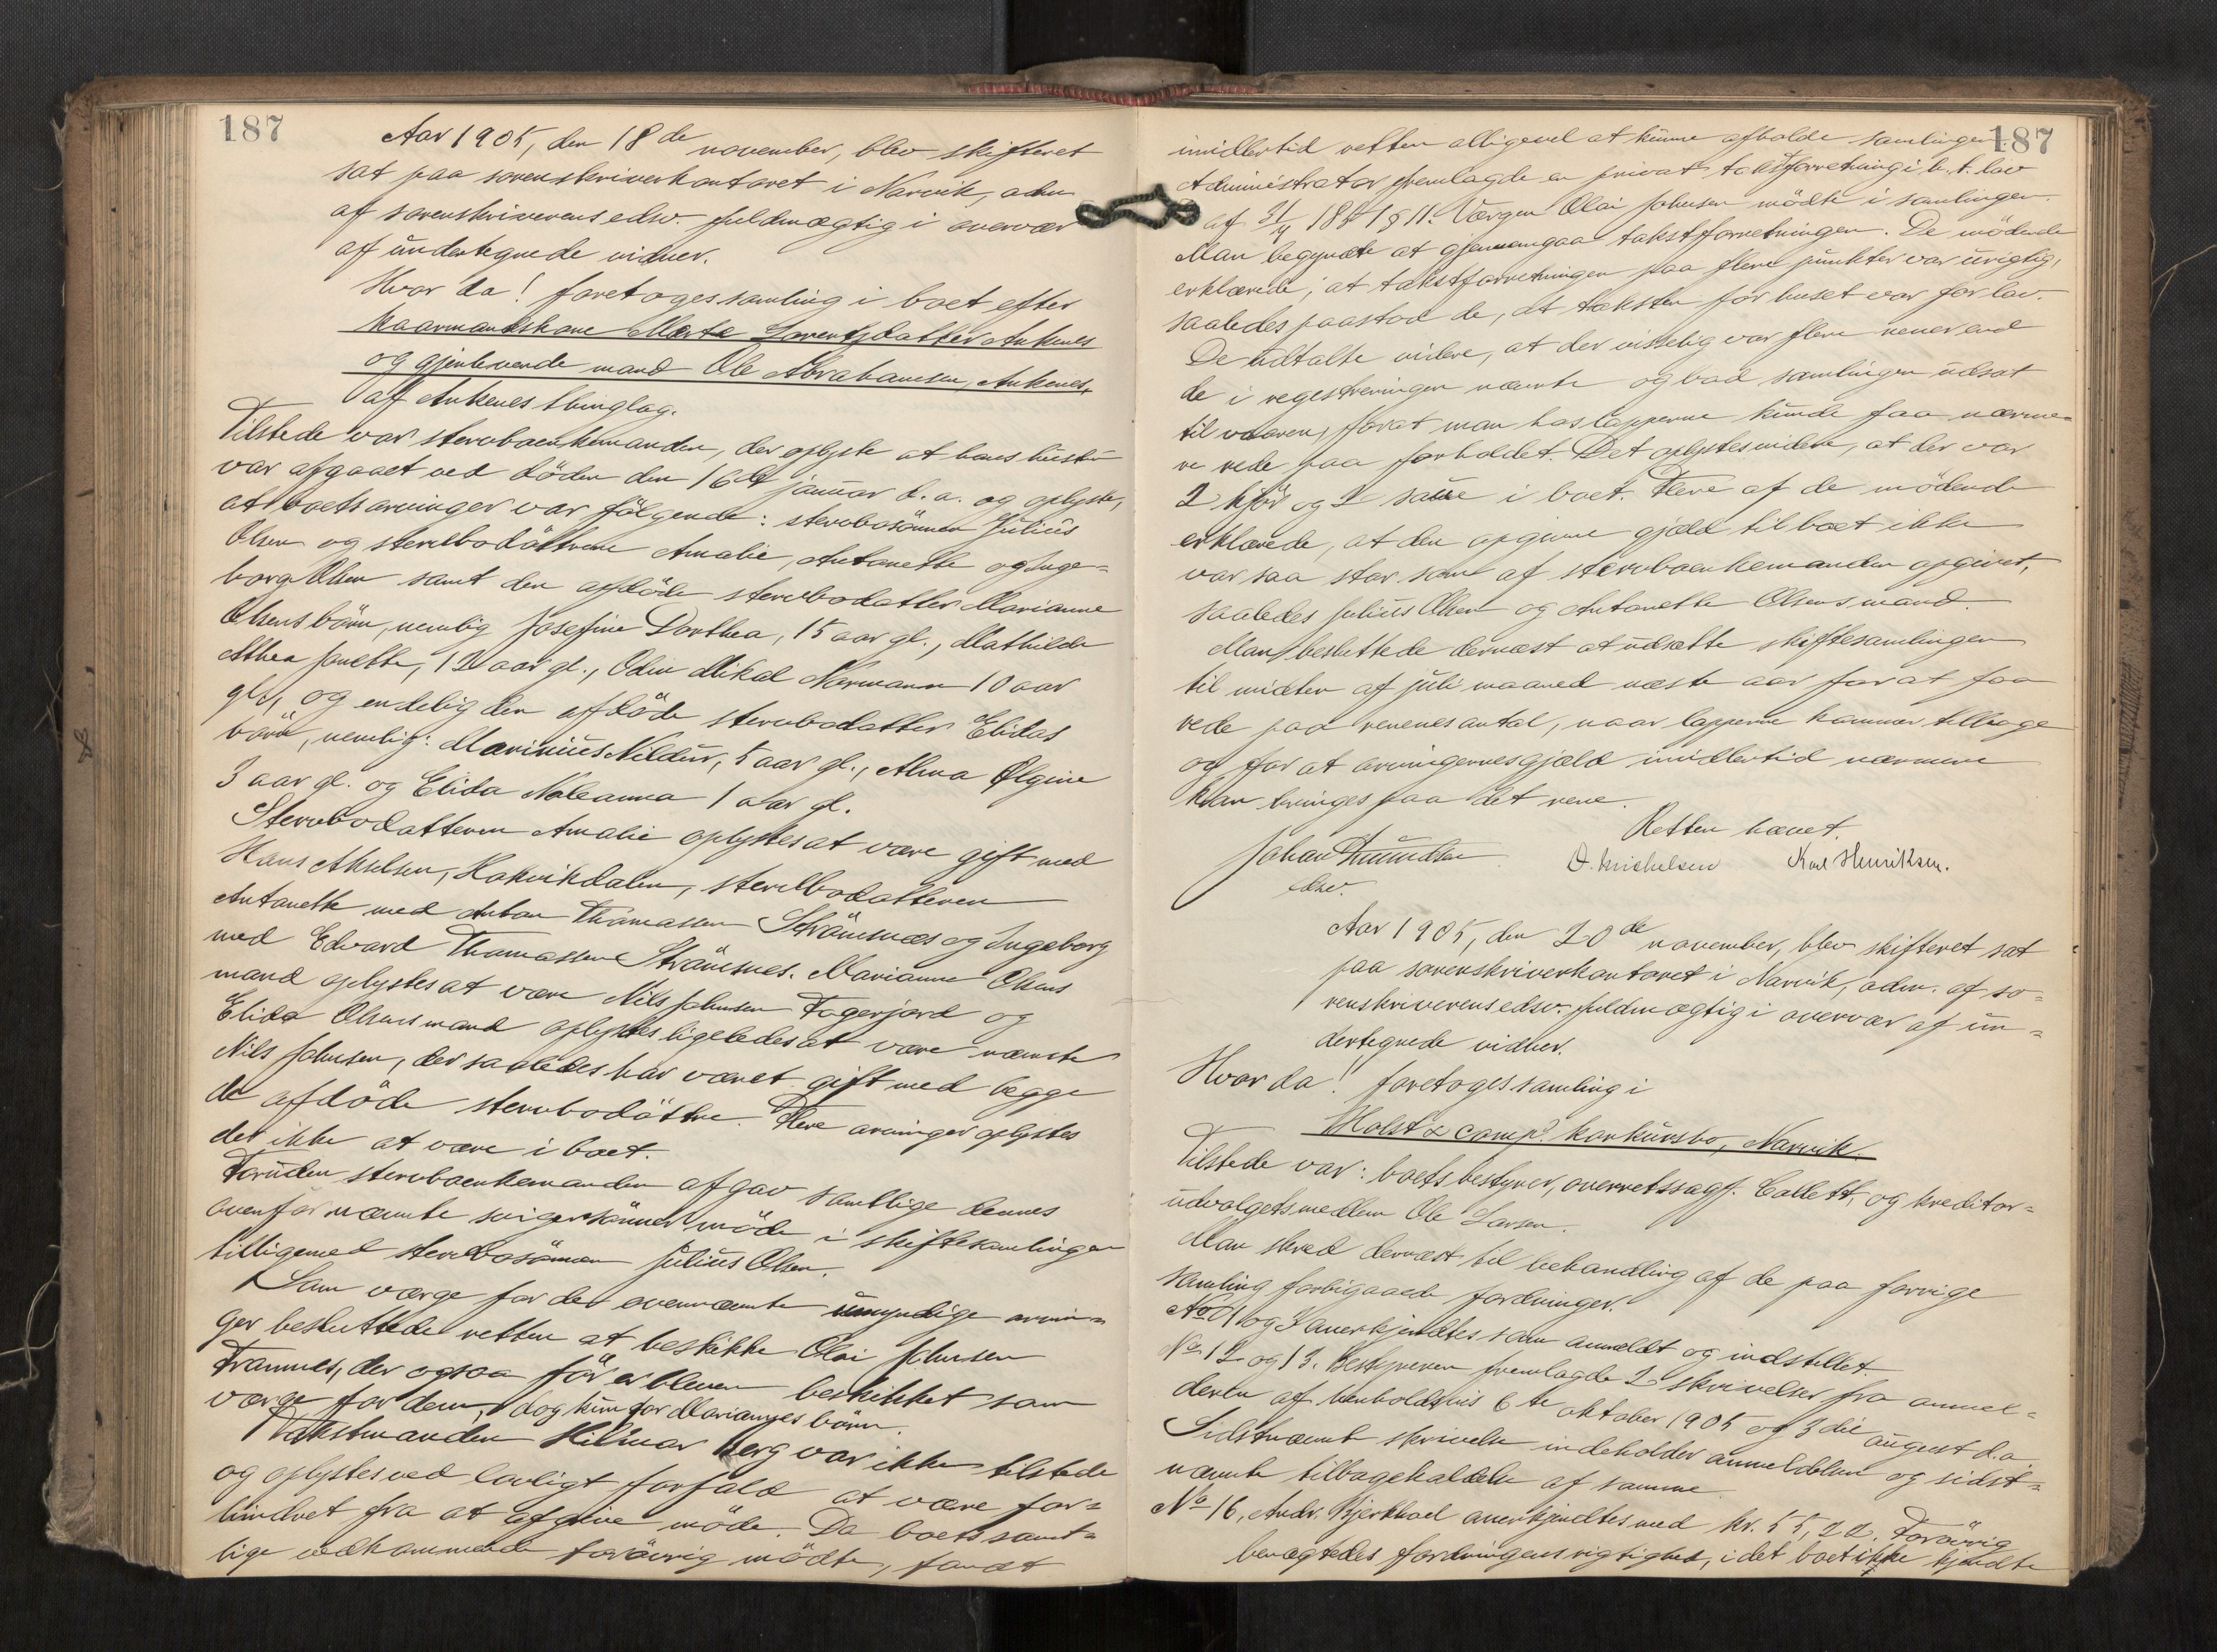 187
Aar 1905, den 18de november, blev skifteret
sat paa sorenskriverkontoret i Narvik, adm.
af sorenskriverens edsv. fuldmægtig i overvær
af undertegnede vidner.
Hvor da! foretoges samling i boet efter
kaarmandskone Marta Lorentzdatter Ankenes
og gjenlevende mand Ole Abrahamsen, Ankenes,
af Ankenes thinglag.
Tilstede var stervboenkemanden, der oplyste at hans hustru
var afgaaet ved döden den 16de januar d.a. og oplyste,
at boets arvinger var fölgende: stervbosönnen Julius
Olsen og stervbodöttrene Amalie, Antonette og Inge-
borg Olsen samt den afdöde stervbodatter Marianne
Olsens börn, nemlig Josefine Dorthea, 15 aar gl., Mathilde
Althea Janette, 12 aar gl., Odin Mikal Normann 10 aar
gl., og endelig den afdöde stervbodatter Elidas
börn, nemlig: Marinius Nildur, 5 aar gl., Alma Olgine
3 aar gl. og Elida Noleanna 1 aar gl.
Stervbodatteren Amalie oplystes at være gift med
Hans Akselsen, Hakvikdalen, stervbodatteren
Antonette med Anton Thomassen Straumsnæs og Ingeborg
med Edvard Thomassen Straumsnes. Marianne Olsens
mand oplystes at være Nils Johnsen Fagerjord og
Elida Olsens mand oplystes ligeledes at være nævnte
Nils Johnsen, der saaledes har været gift med begge
de afdöde stervbodöttre. Flere arvinger oplystes
det ikke at være i boet.
Foruden stervboenkemanden afgav samtlige dennes
ovenfor nævnte svigersönner möde i skiftesamlingen
tilligemed stervbosönnen Julius Olsen.
Som værge for de ovennævnte umyndige arvin-
ger besluttede retten at beskikke Olai Johnsen
Framnes, der ogsaa för er bleven beskikket som
værge for dem, dog kun for Mariannes börn.
Takstmanden Hilmar Berg var ikke tilstede
og oplystes ved lovligt forfald at være for-
hindret fra at afgive möde. Da boets samt-
lige vedkommende forövrig mödte, fandt
187
imidlertid retten alligevel at kunne afholde samlingen.
Administrator fremlagde en privat takstforretning i h.t. lov
af 31/4 1851 § 11. Værgen Olai Johnsen mödte i samlingen.
Man begyndte at gjennemgaa takstforretningen. De mödende
erklærede, at takstforretningen paa flere punkter var urigtig,
saaledes paastod de, at taksten for huset var for lav.
De udtalte videre, at der visselig var flere rener end
de i registreringen nævnte og bad samlingen udsat
til vaaren, forat man hos lapperne kunde faa nærme-
re rede paa forholdet. Det oplystes videre, at der var
2 kjör og 2 saue i boet. Flere af de mödende
erklærede, at den opgivne gjæld til boet ikke
var saa stor som af stervboenkemanden opgivet,
saaledes Julius Olsen og Antonette Olsens mand.
Man besluttede dernæst at udsætte skiftesamlingen
til midten af juli maaned næste aar for at faa
rede paa renenes antal, naar lapperne kommer tilbage
og for at arvingernes gjæld imidlertid nærmere
kan bringes paa det rene.
Retten hævet.
Johan Knudsen O. Michelsen Karl Henriksen.
edsv.
Aar 1905, den 20de november, blev skifteret sat
paa sorenskriverkontoret i Narvik, adm. af so-
renskriverens edsv. fuldmægtig i overvær af un-
dertegnede vidner.
Hvor da! foretoges samling i
Holst & comp? konkursbo, Narvik.
Tilstede var: boets bestyrer, overretssagf. Collett, og kreditor-
udvalgets medlem Ole Larsen.
Man skred dernæst til behandling af de paa forrige
samling forbigaaede fordringer.
No 1 og 3 anerkjendtes som anmeldt og indstillet.
No 12 og 13. Bestyreren fremlagde 2 skrivelser fra anmel-
deren af henholdsvis 6te oktober 1905 og 3die august d.a.
Sidstnævnte skrivelse indeholder anmeldelsen og sidst-
nævnte tilbagekaldelse af samme.
No 16, Andr. Kjerkhoel anerkjendtes med kr. 55,22. Forövrig
benægtedes fordringens rigtighed, i det boet ikke kjendte